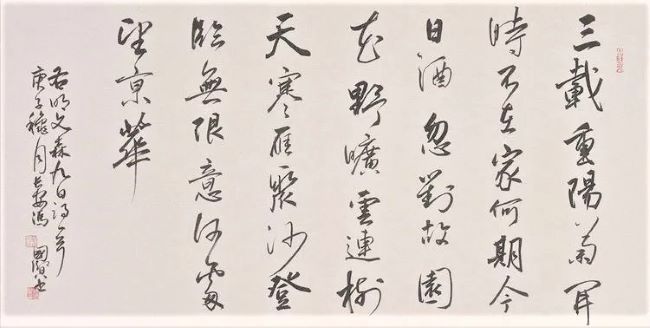 三載重陽菊開
時不在家何期今
日酒忽對故園
花野曠雲連樹
天寒雁聚沙登
臨無限意何處
望京華
右明文森九日詩一首
庚子穐月長安馮國